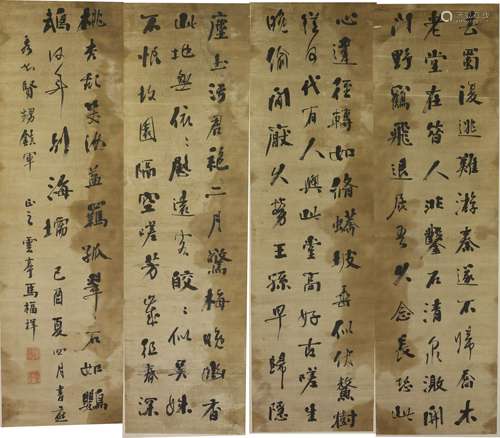 去蜀復逃難游秦遂不歸喬木
老堂在昔人非鑿石清泉激開
門野鶴飛退居吾久念長恐此
心違徑轉如修蟒坡垂似伏鰲樹
從何代有人與此堂高好古嗟生
晚偷閒厭久勞王孫早歸隱
塵土污君袍二月驚梅晚幽香
此地無依〻慰遠客皎〻似吳姝
不恨故園隔空嗟芳歲徂春深
桃杏亂笑汝益羈孤翠石如鸚
鵡何年別海壖 己酉夏四月書應
賢甥鎮軍 正之 雲亭馬福祥